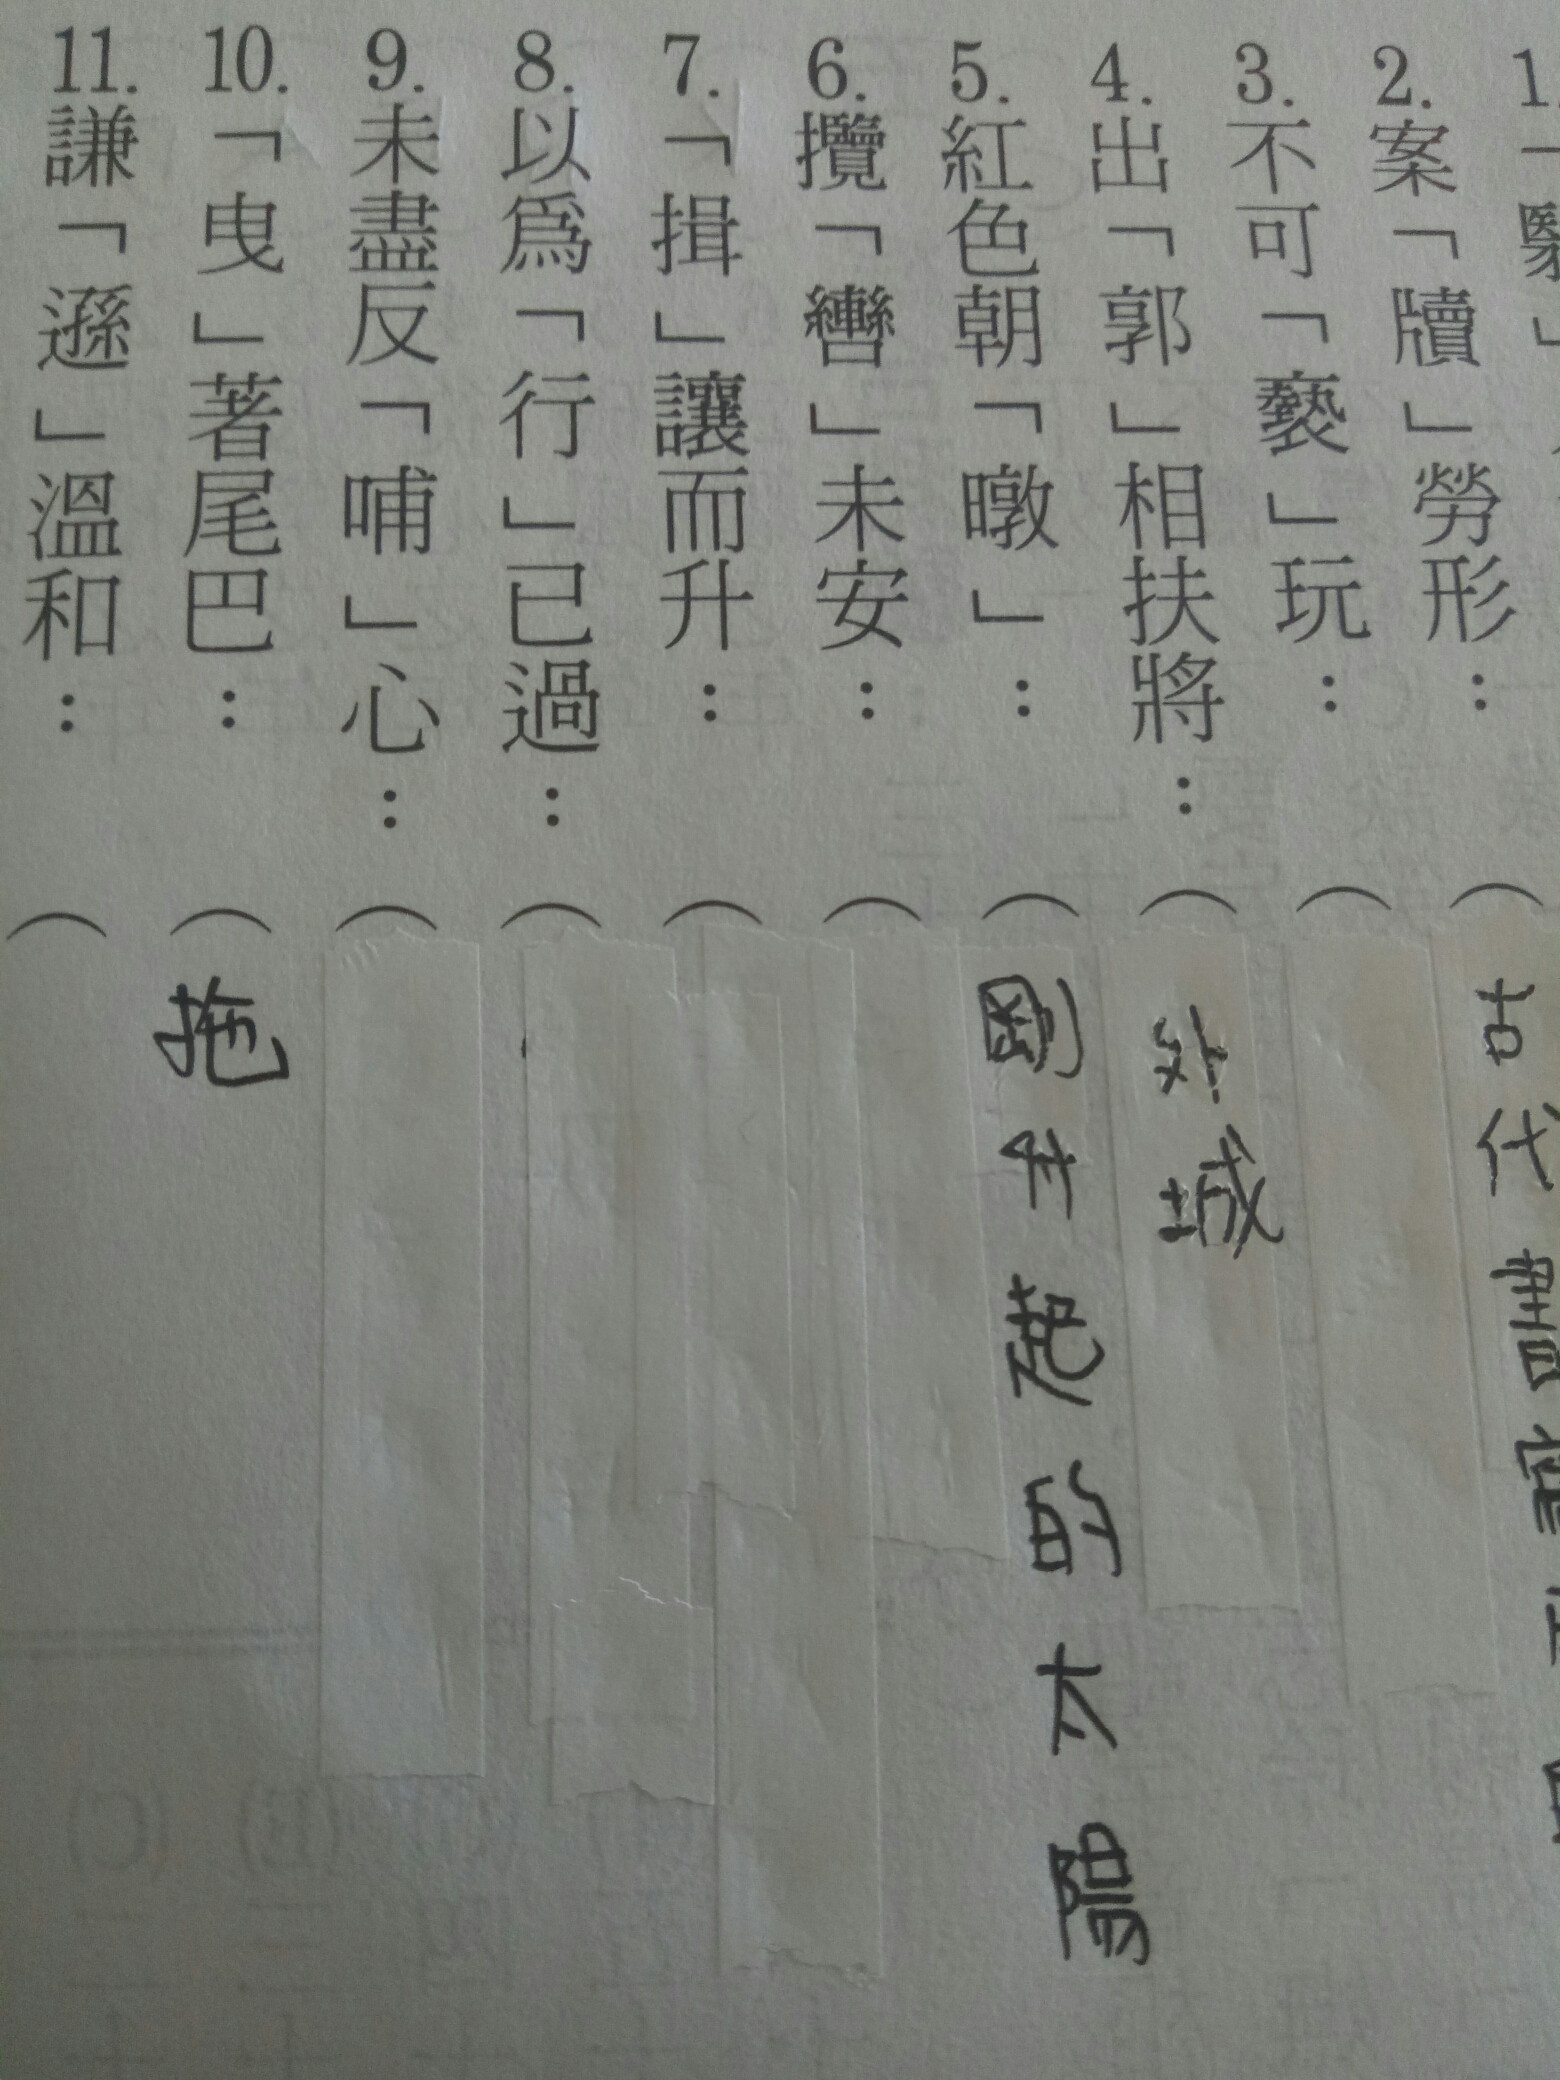 2.案「牘」勞形：（古代書
3.不可「褻」玩：（
4.出「郭」相扶將：（外城
5.紅色朝「暾」：（剛升起的太陽
6.攬「轡」未安：（
7.「揖」讓而升：（
8.以為「行」已過：（
9.未盡反「哺」心：（
10.「曳」著尾巴：（拖
11.謙「遜」溫和：（